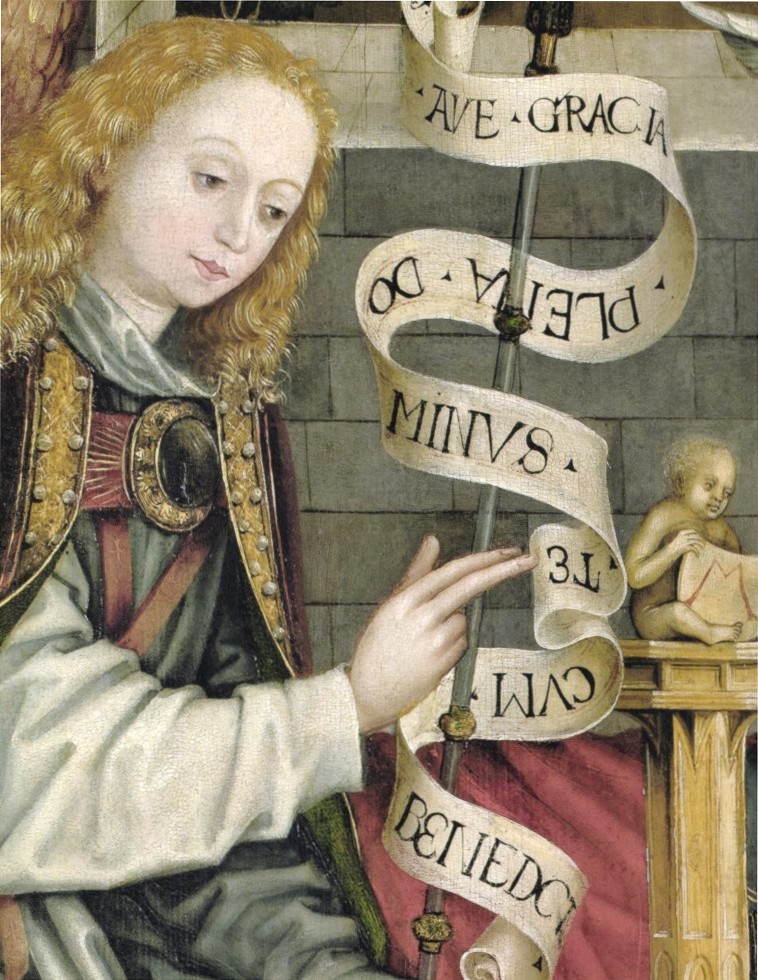 · AVE · GRACIA
· PLENA · DO
MINVS ·
· TE
CVM ·
BENEDCT